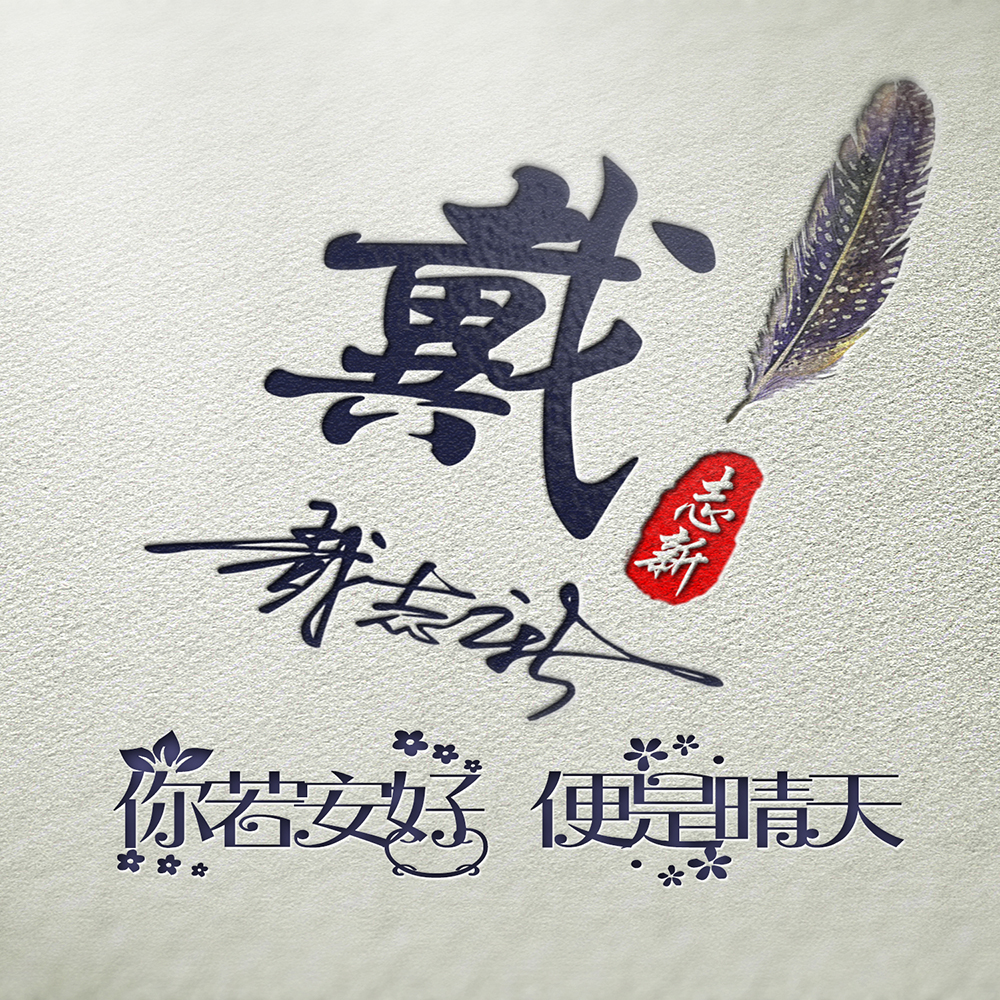 戴
志新
戴志新
你若安好 便是晴天